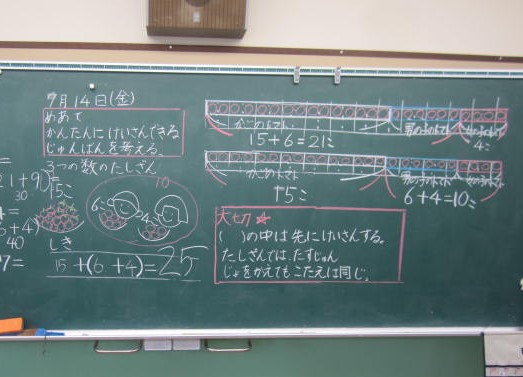 9月14日(金)
めあて
かんたんにけいさんできる
じゅんばんを考える。
3つの数のたしざん
21+9)
30
15こ
10
6こ
4こ
+4)
40
しき
15+(6+4)=25
かごのトマト
男の子のトマト
15+6=21こ
4こ
かごのトマト
男の子のトマト
15こ
6+4=10こ
大切☆
( )の中は先にけいさんする。
たしざんでは、たすじゅん
じょをかえてもこたえは同じ。